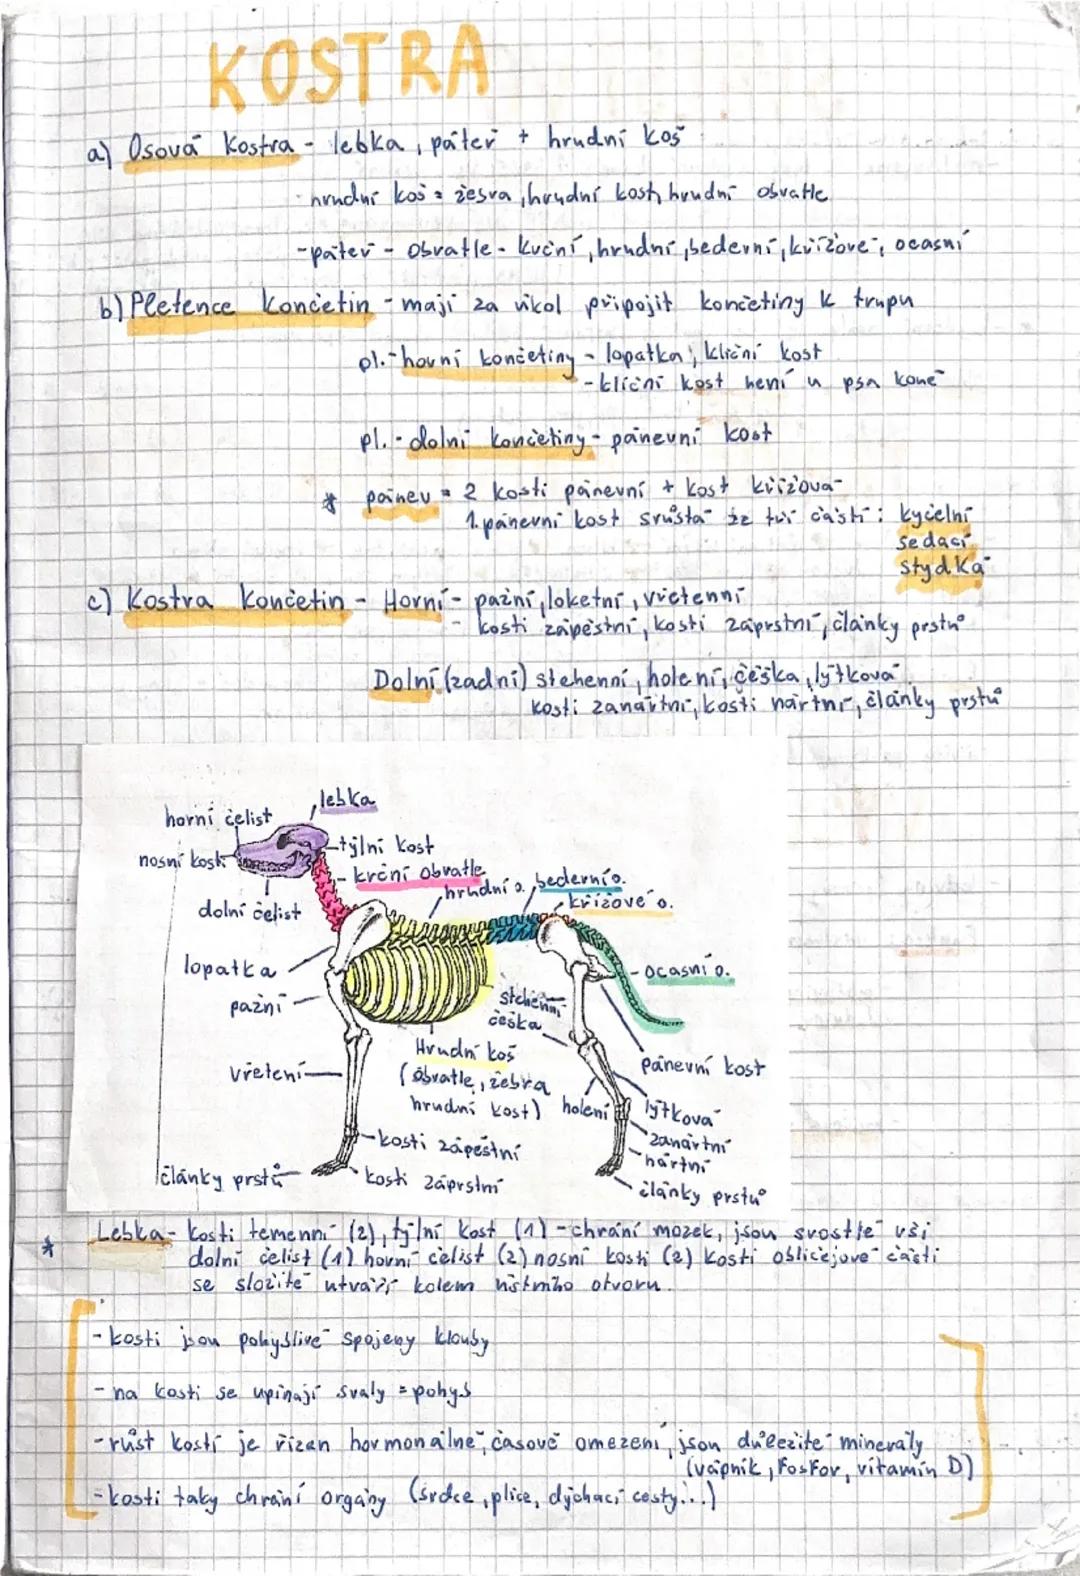 KOSTRA
a) Osová kostra - lebka, páteř + hrudní koš
- hrudní koš = žebra, hrudní kost, hrudní obratle
- páteř - obratle - krční, hrudní, bederní, křížové, ocasní
b) Pletence končetin - mají za úkol připojit končetiny k trupu
pl. - horní končetiny - lopatka, klíční kost
- klíční kost není u psa koně
pl. - dolní končetiny - pánevní kost
* pánev = 2 kosti pánevní + kost křížová
1. pánevní kost srůstá ze tří částí: kyčelní
sedací
stydká
c) Kostra končetin - Horní - pažní, loketní, vřetenní
- kosti zápěstní, kosti záprstní, články prstů
Dolní (zadní) stehenní, holení, češka, lýtková
kosti zanártní, kosti nártní, články prstů
lebka
horní čelist
týlní kost
nosní kosti
krční obratle
hrudní o.
bederní o.
křížové o.
dolní čelist
lopatka
ocasní o.
pažní
stehenní
češka
Hrudní koš
(obratle, žebra
hrudní kost)
vřetení
pánevní kost
holení
lýtková
zanártní
nártní
kosti zápěstní
články prstů
kosti záprstní
články prstů
* Lebka - kosti temenní (2), týlní kost (1) - chrání mozek, jsou srostlé vůči
dolní čelist (1) horní čelist (2) nosní kosti (2) kosti obličejové části
se složitě utváří kolem ústního otvoru.
- kosti jsou pohyblivě spojeny klouby
- na kosti se upínají svaly = pohyb
- růst kostí je řízen hormonálně, časově omezení, jsou důležité minerály
(vápník, fosfor, vitamín D)
- kosti taky chrání orgány (srdce, plíce, dýchací cesty...)